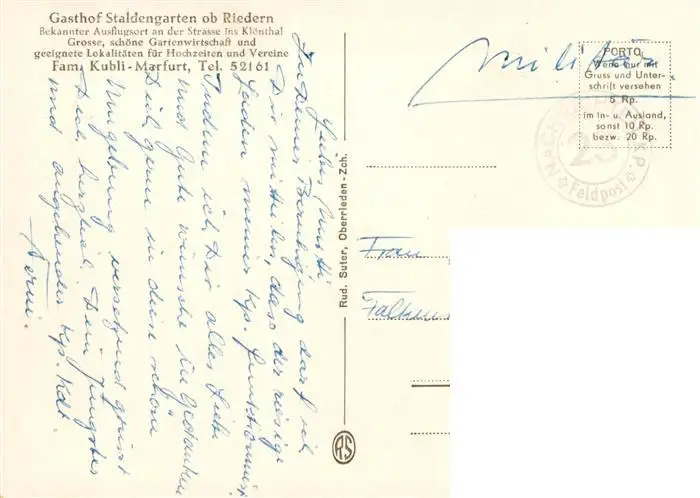 Gasthof Staldengarten ob Riedern
Bekannter Ausflugsort an der Strasse ins Klönthal
Grosse, schöne Gartenwirtschaft und
geeignete Lokalitäten für Hochzeiten und Vereine
Fam. Kubli-Marfurt, Tel. 52161
Liebes Mutti
zu Deiner Beruhigung darf ich
Dir mitteilen, dass der riesige
Laden meiner Kp. funktioniert
Indem ich Dir alles Liebe
und Gute wünsche in Gedanken
Dich gerne in deine schöne
Umgebung versetzend grüsst
Dich herzlich Dein jüngster
und angehender Kp. Kdt.
Rud. Suter, Oberrieden-Zch.
RS
Militär
PORTO
Wenn nur mit
Gruss und Unter-
schrift versehen
5 Rp.
im In- u. Ausland,
sonst 10 Rp.
bezw. 20 Rp.
Feldpost
Frau